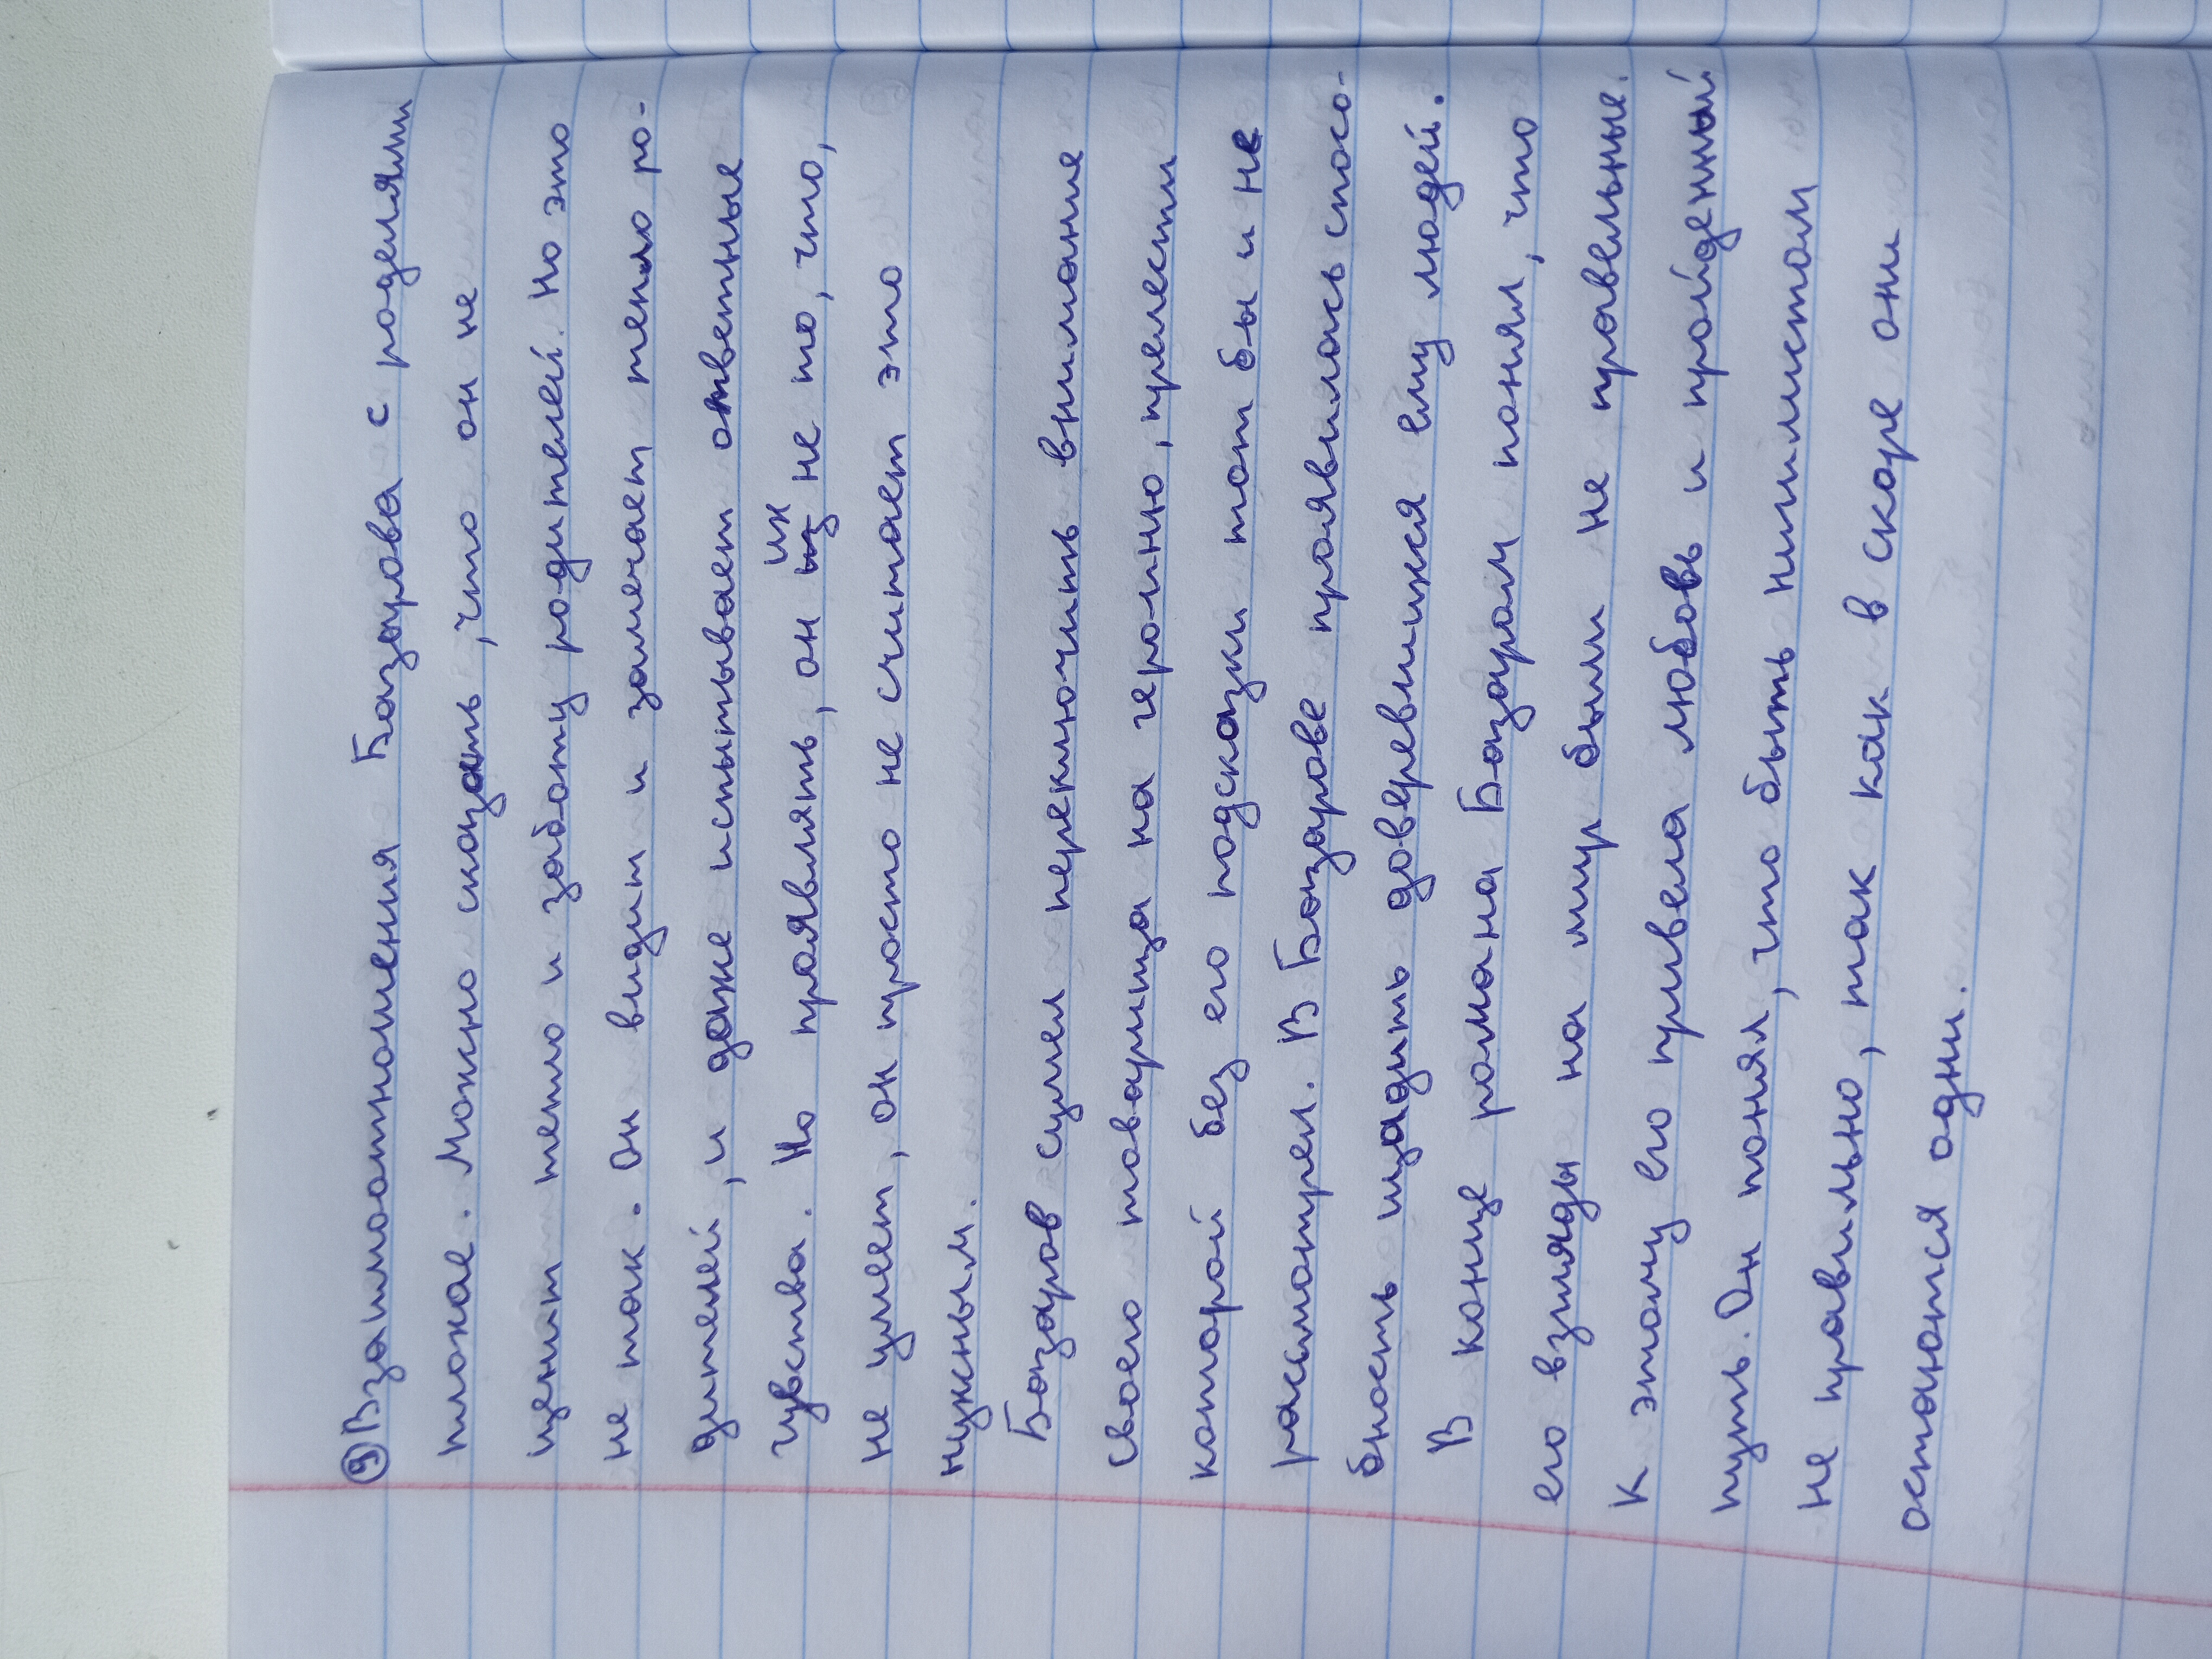 ⑨ Взаимоотношения Базарова с роделями
плохае. Можно сказать, что он не
ценит тепло и заботу родителей. Но это
не так. Он видит и замечает тепло ро-
дителей, и даже испытывает ответные
чувства. Но проявлять, он их не то, что,
не умеет, он просто не считает это
нужным.
Базаров сумел переключить внимание
своего товарища на героиню, прелести
которой без его подсказки тот бы и не
рассмотрел. В Базарове проявилась спосо-
бность щадить доверевшихся ему людей.
В конце романа Базаром понял, что
его взгляды на мир были не правельные.
К этому его привела любовь и пройденный
путь. Он понял, что быть нигилистом
не правильно, так как в скоре они
останются одни.